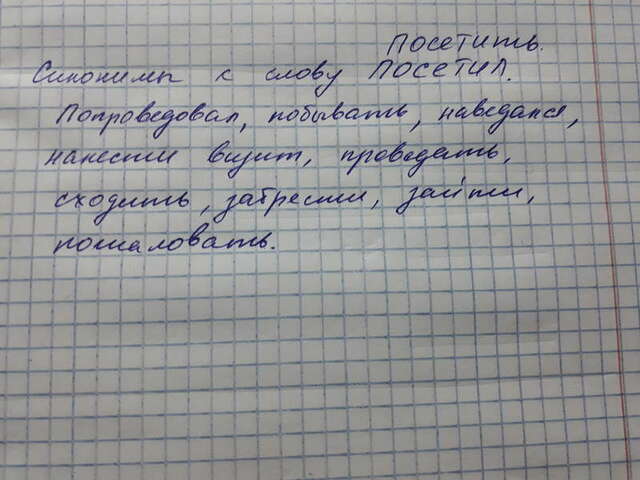 посетить.
Синонимы к слову ПОСЕТИЛ.
Попроведовал, побывать, наведался,
нанести визит, проведать,
сходить, забрести, зайти,
пожаловать.